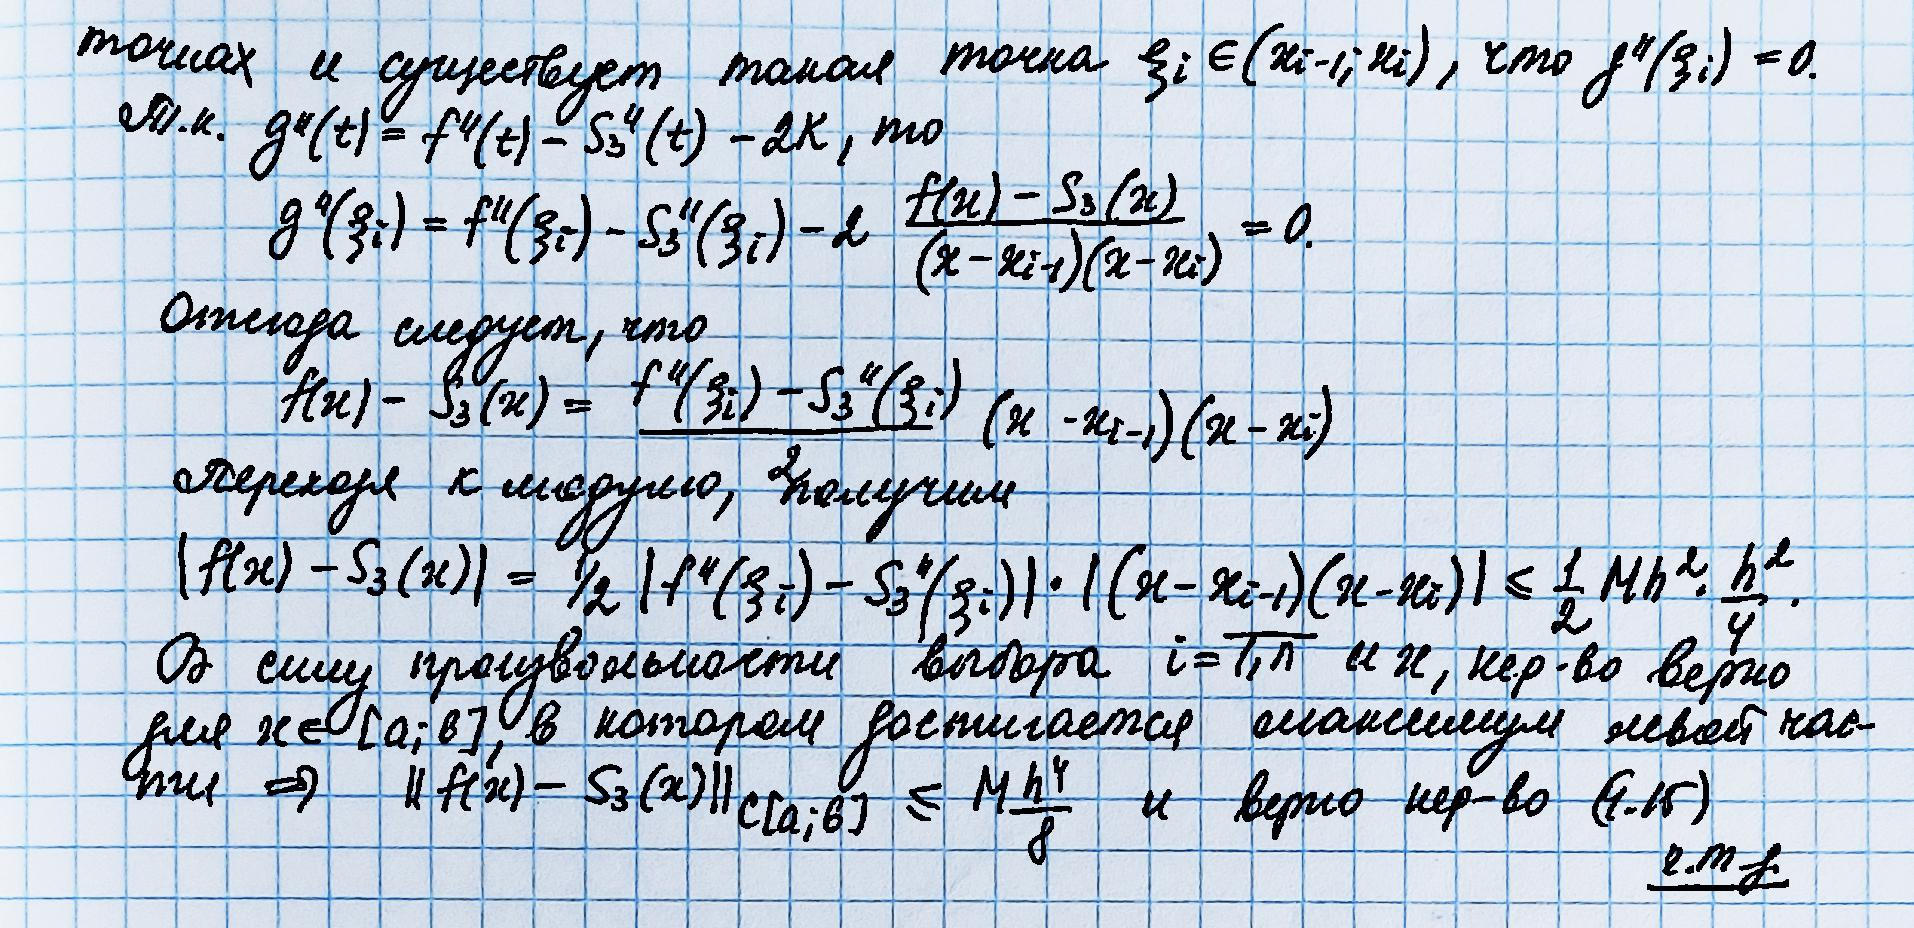 точках и существует такая точка ξi ∈ (xi-1; xi), что g''(ξi) = 0.
Т.к. g''(t) = f''(t) - S3''(t) - 2K, то
g''(ξi) = f''(ξi) - S3''(ξi) - 2 (f(x) - S3(x)) / ((x - xi-1)(x - xi)) = 0.
Отсюда следует, что
f(x) - S3(x) = (f''(ξi) - S3''(ξi)) / 2 (x - xi-1)(x - xi)
Переходя к модулю, получим
|f(x) - S3(x)| = 1/2 |f''(ξi) - S3''(ξi)| · |(x - xi-1)(x - xi)| ≤ 1/2 Mh² · h²/4.
В силу произвольности выбора i = 1,n и x, нер-во верно
для x ∈ [a; b], в котором достигается максимум левой час-
ти ⇒ ||f(x) - S3(x)||C[a; b] ≤ M h⁴/8 и верно нер-во
ч.т.д.